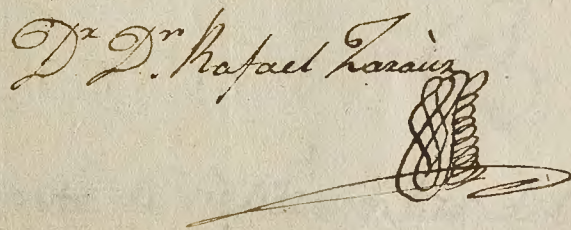 Dr Dn. Rafael Zaraùz